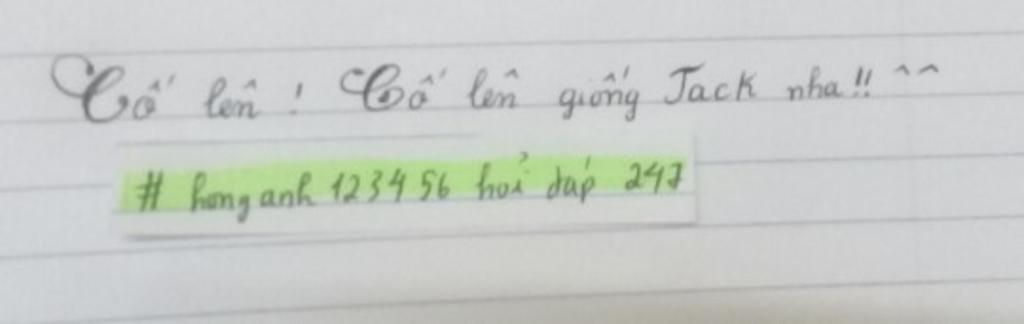 Cố lên ! Cố lên giống Jack nha !! ^^
# hong anh 123456 hỏi đáp 247